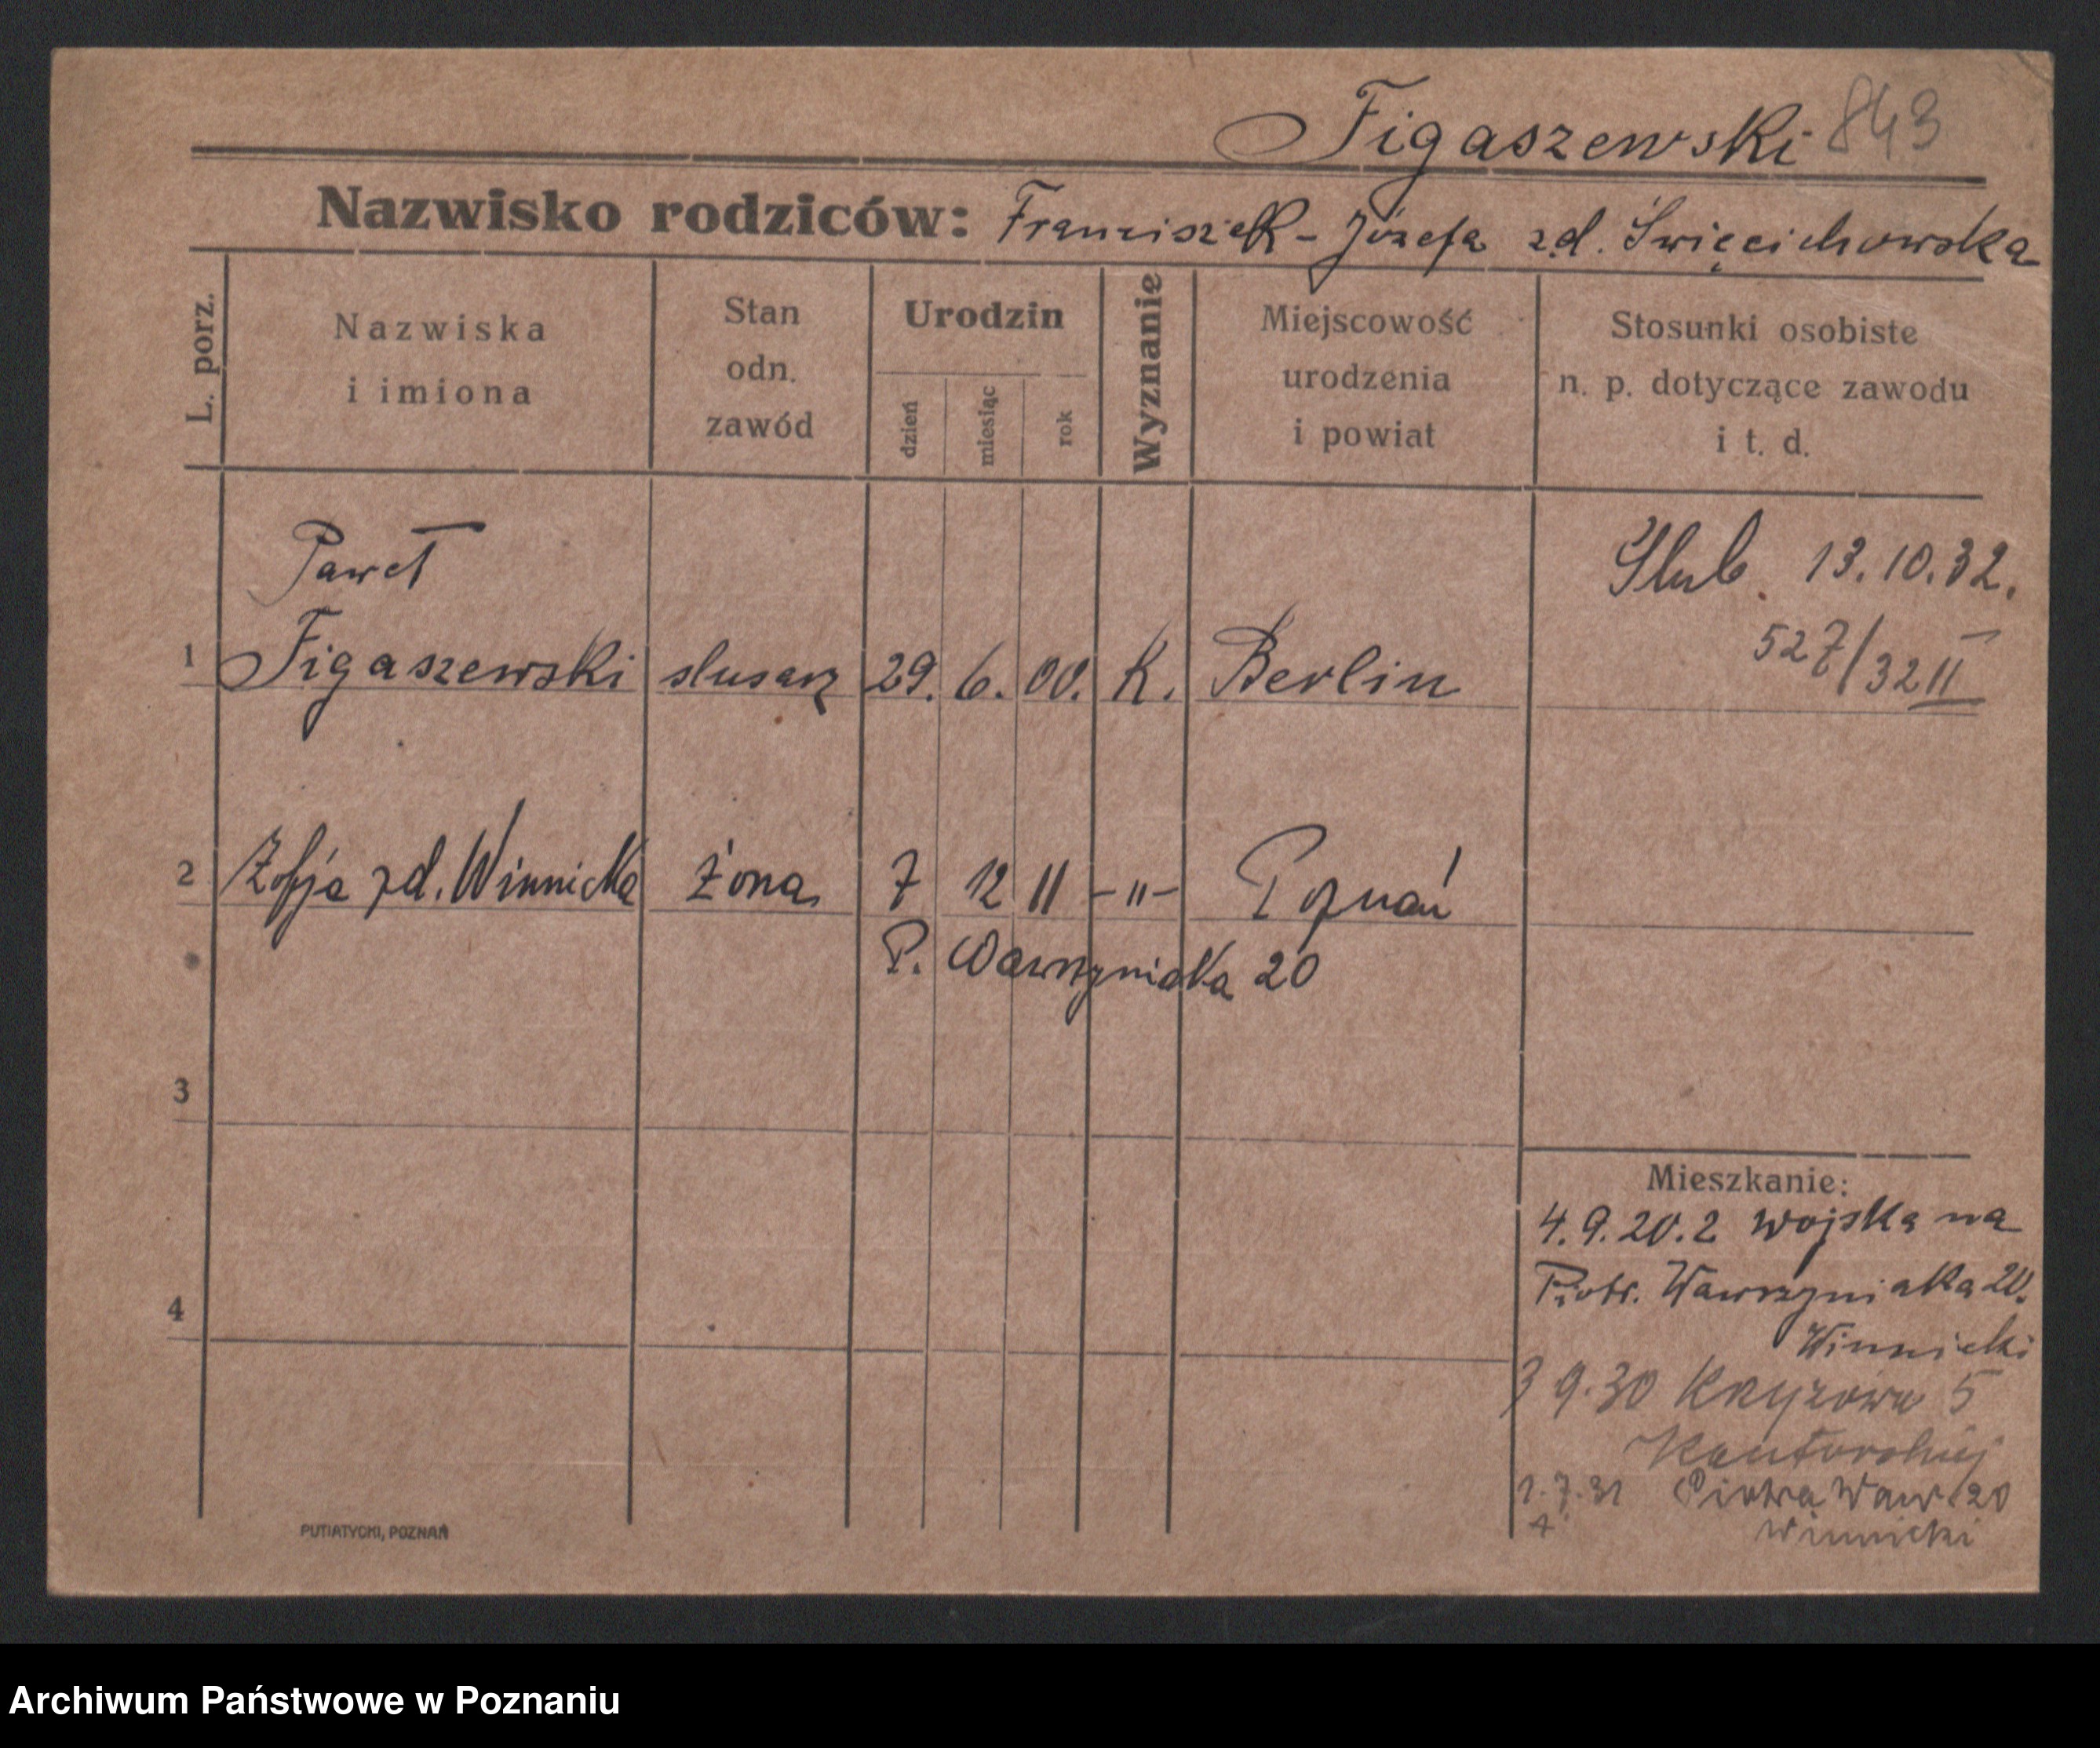 Figaszewski 843
Nazwisko rodziców: Franciszek - Józefa zd. Święcichowska
L. porz.
Nazwiska
i imiona
Stan
odn.
zawód
Urodzin
dzień
miesiąc
rok
Wyznanie
Miejscowość
urodzenia
i powiat
Stosunki osobiste
n. p. dotyczące zawodu
i t. d.
Paweł
Ślub 13.10.32.
1 Figaszewski slusarz 29. 6. 00. K. Berlin
527/32 II
2 Zofja zd. Winnicka żona 7 12 11 -"- Poznań
P. Wawrzyniaka 20
3
Mieszkanie:
4.9.20. z wojska na
Piotr. Wawrzyniaka 20.
4
Winnicki
3 9.30 Krzyżowa 5
1.7.31 Piotra Waw. 20
Winnicki
PUTIATYCKI, POZNAŃ
Archiwum Państwowe w Poznaniu